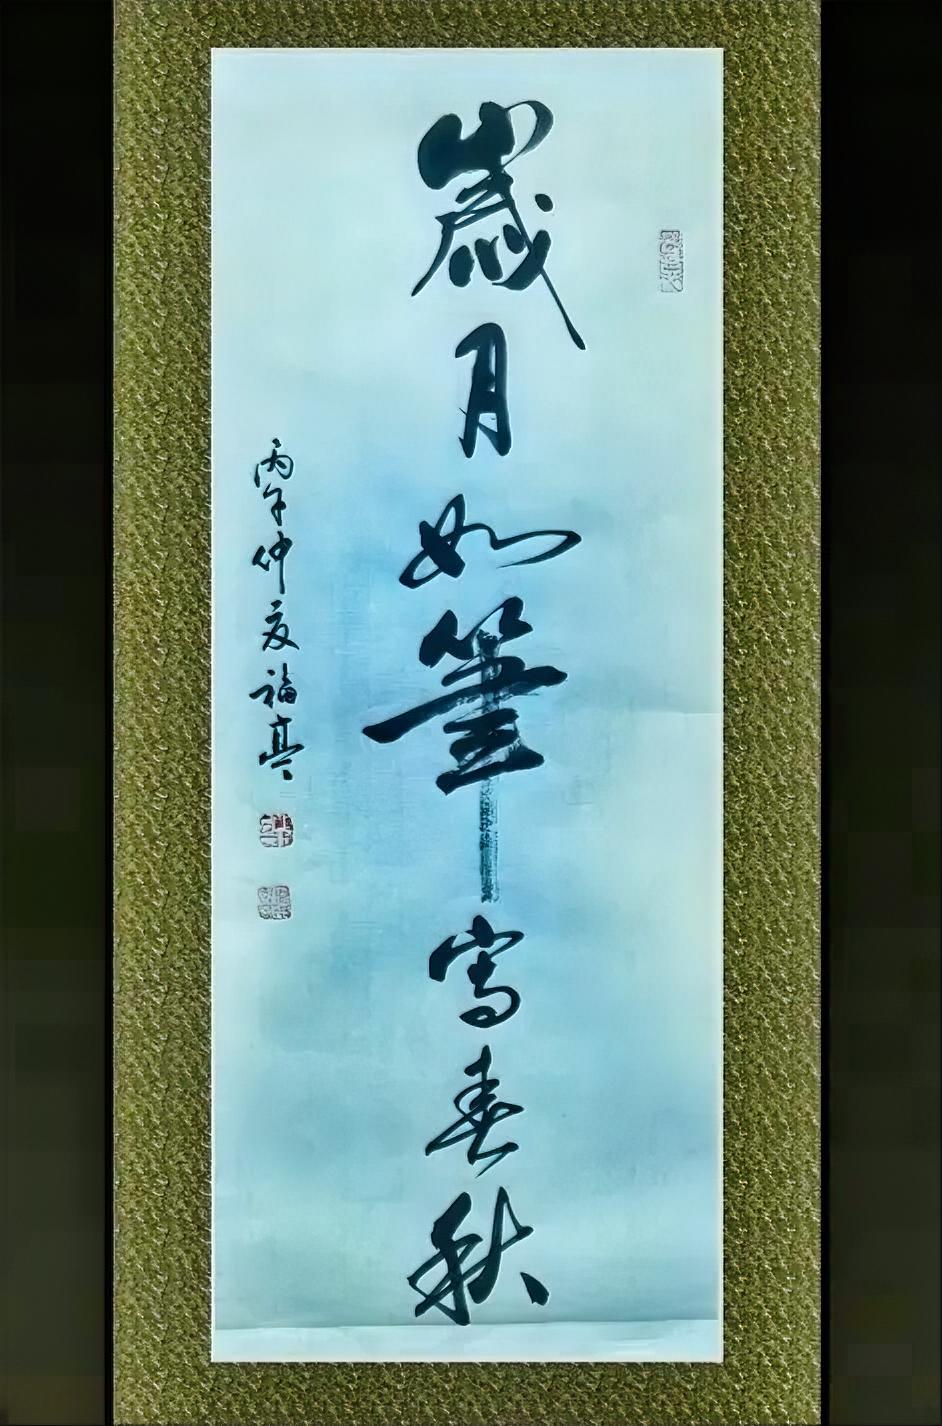 歲月如筆寫春秋
丙午仲夏福亭